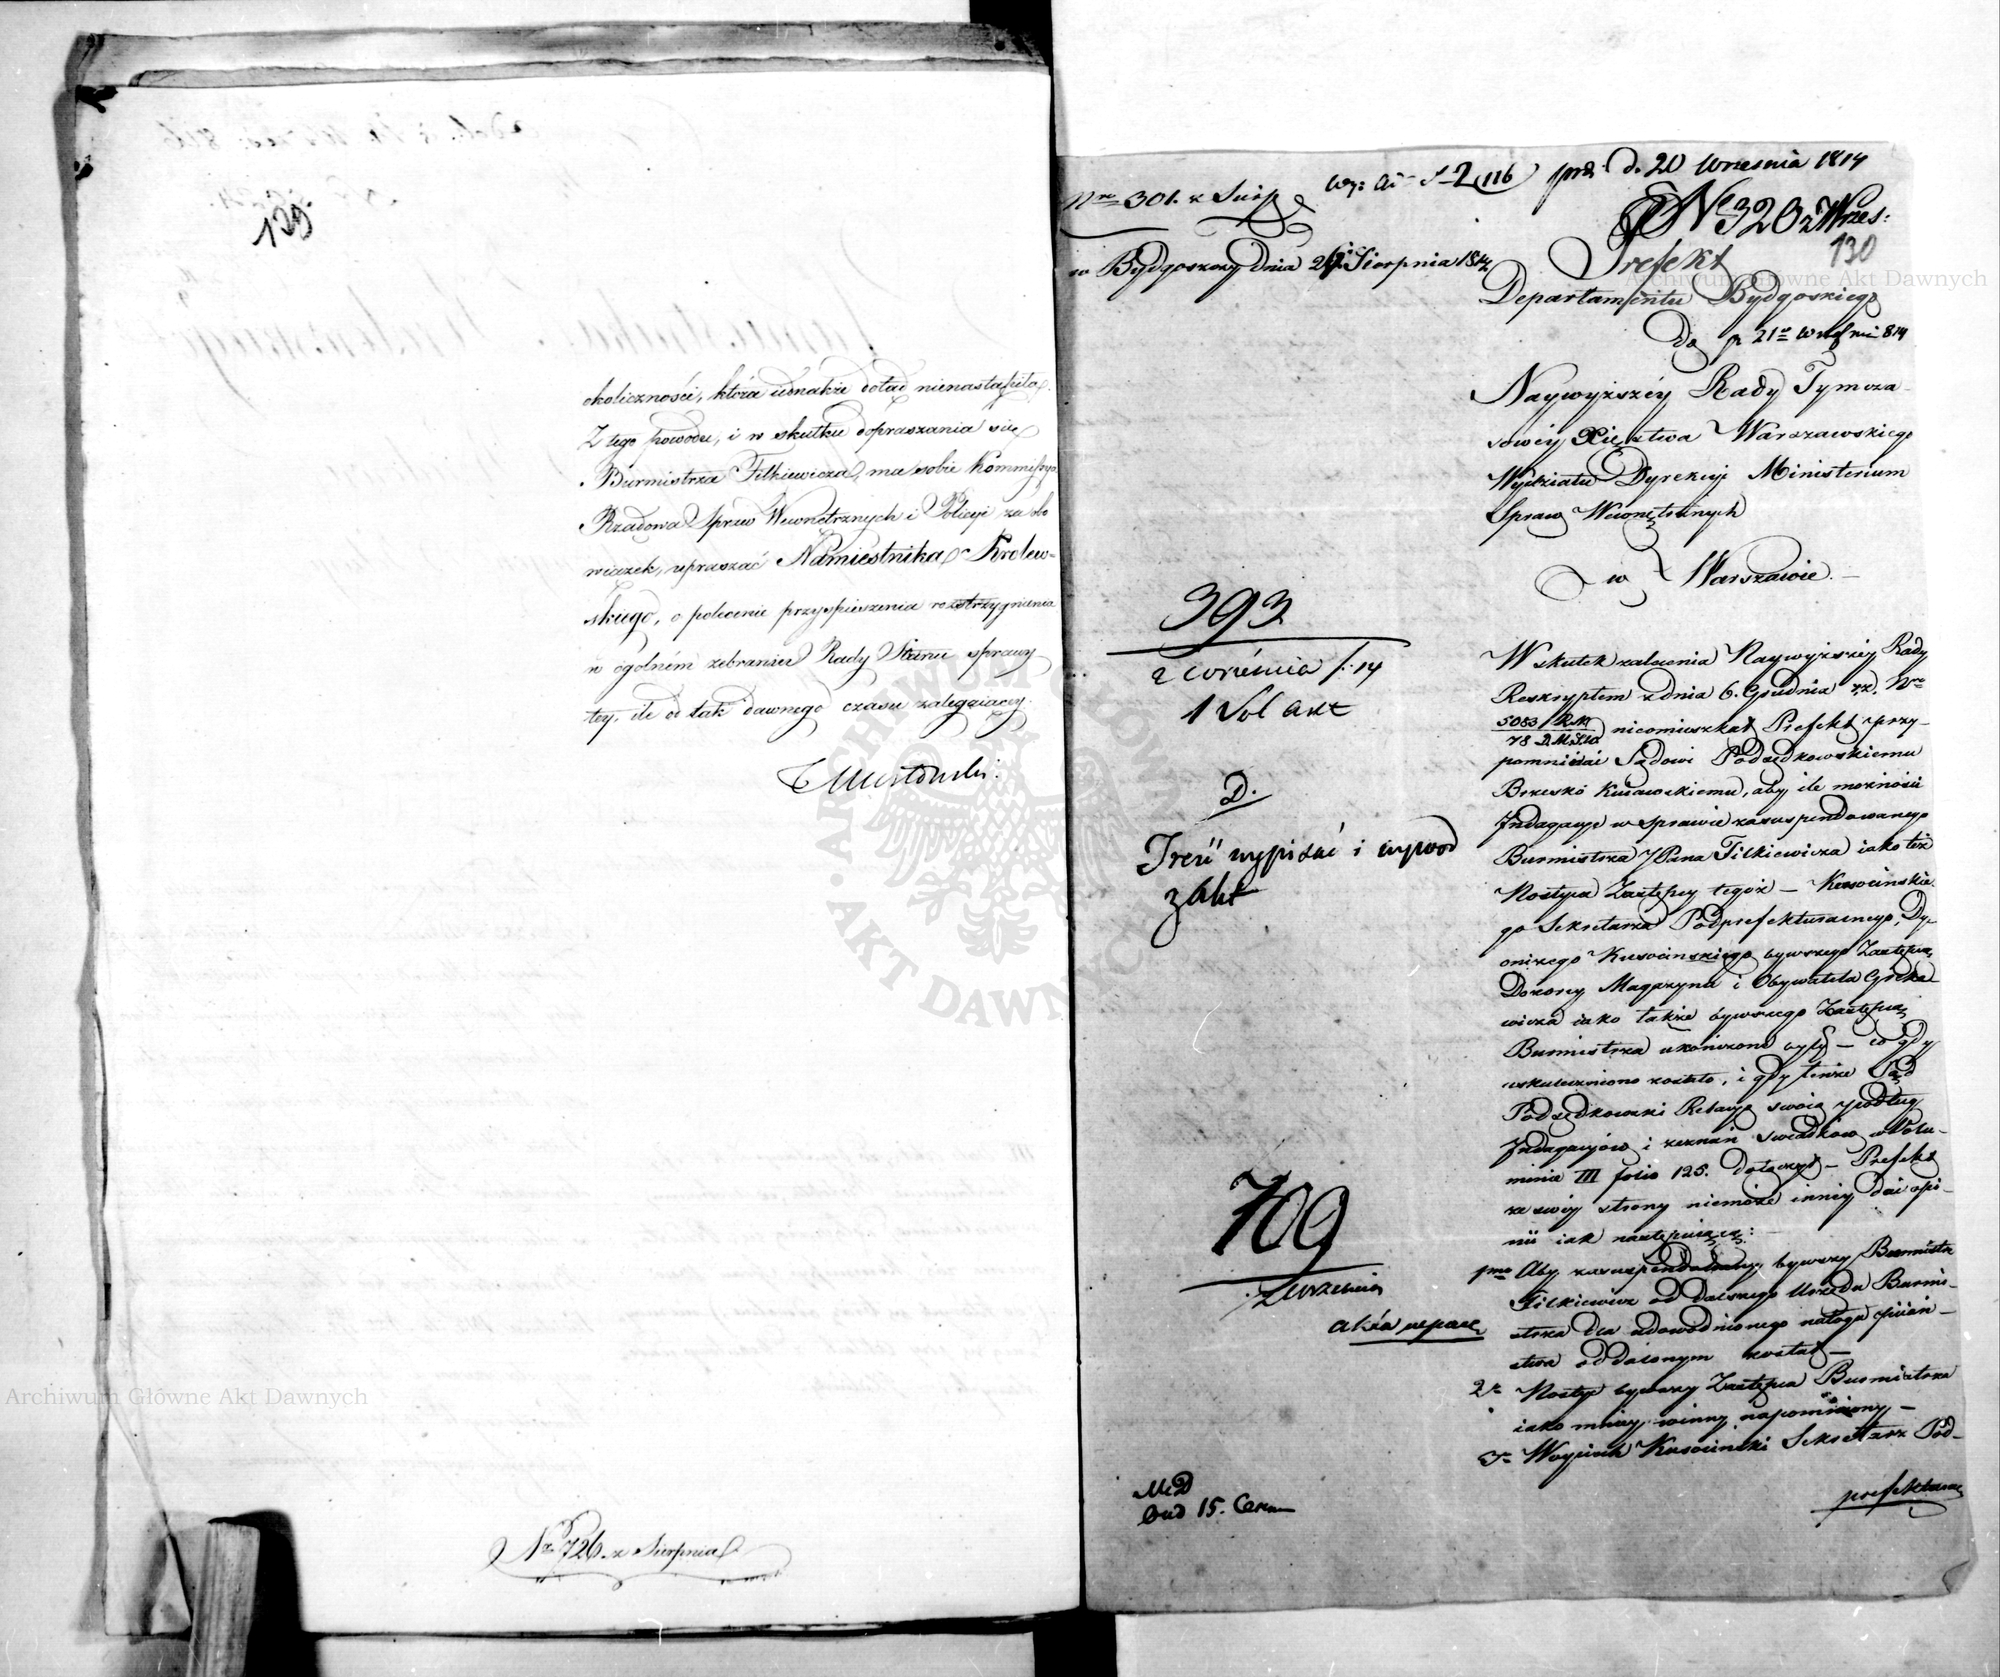 129
okoliczności, która iednakże dotąd nienastąpiła.
Z tego powodu, i w skutku dopraszania się
Burmistrza Filkiewicza, ma sobie Kommissya
Rządowa Spraw Wewnętrznych i Policyi, za obo
wiązek, upraszać Namiestnika Królew=
skiego, o polecenie przyspieszenia rozstrzygnienia
w ogólném zebraniu Rady Stanu sprawy
tey, ile od tak dawnego czasu zalegaiącey.
Mostowski.
Nr 726. z Sierpnia
Nro 301. z Sierp
prd. d. 20 Września 1814
N 320 z Wrześ:
130
w Bydgoszczy dnia Sierpnia 1814
Prefekt
Departamentu Bydgoskiego
do
p 21 Września 814
Naywyższéy Rady Tymcza
sowéy Xięstwa Warszawskiego
Wydziału Dyrekcyi Ministerium
Spraw Wewnętrznych
w Warszawie.
393.
2 Września 14
1 Vol akt
D.
Treść wypisać i wywod
z akt
709
z Września
W skutek zalecenia Naywyższéy Rady
Reskryptem z dnia 6. Grudnia z.r. Nro
5083 nieomieszkał Prefekt przy-
78
pomnieć Sądowi Podsędkowskiemu
Brzesko Kuiawskiemu, aby ile możności
Indagacye w sprawie zasuspendowanego
Burmistrza JPana Filkiewicza iako też
Nostyca Zastępcy tegoż – Kusocińskie
go Sekretarza Podprefekturalnego, Dy-
onizego Kusocińskiego bywszego Zastępcy
Dozorcy Magazynu i Obywatela
wicza iako także bywszego Zastępcy
Burmistrza ukończone były – co gdy
uskuteczniono zostało, i gdy tenże Sąd
Podsędkowski Relacyą swoią podług
Indagacyów i zeznań Swiadków w Volu-
minie III folio 125. dołączył – Prefekt
ze swéy strony niemoże innéy dać opi-
nii iak następuiącą:
pmo Aby zasuspendowany bywszy Burmistrz
Filkiewicz od dalszego Urzędu Burmi-
strza dla udowodnionego nałogu piiań-
stwa oddalonym został –
2o Nostyc bywszy Zastępca Burmistrza
iako mniey winny napomniony –
3o Woyciech Kusociński Sekretarz Pod-
prefektural
Archiwum Główne Akt Dawnych
Archiwum Główne Akt Dawnych
ARCHIWUM GŁÓWNE AKT DAWNYCH